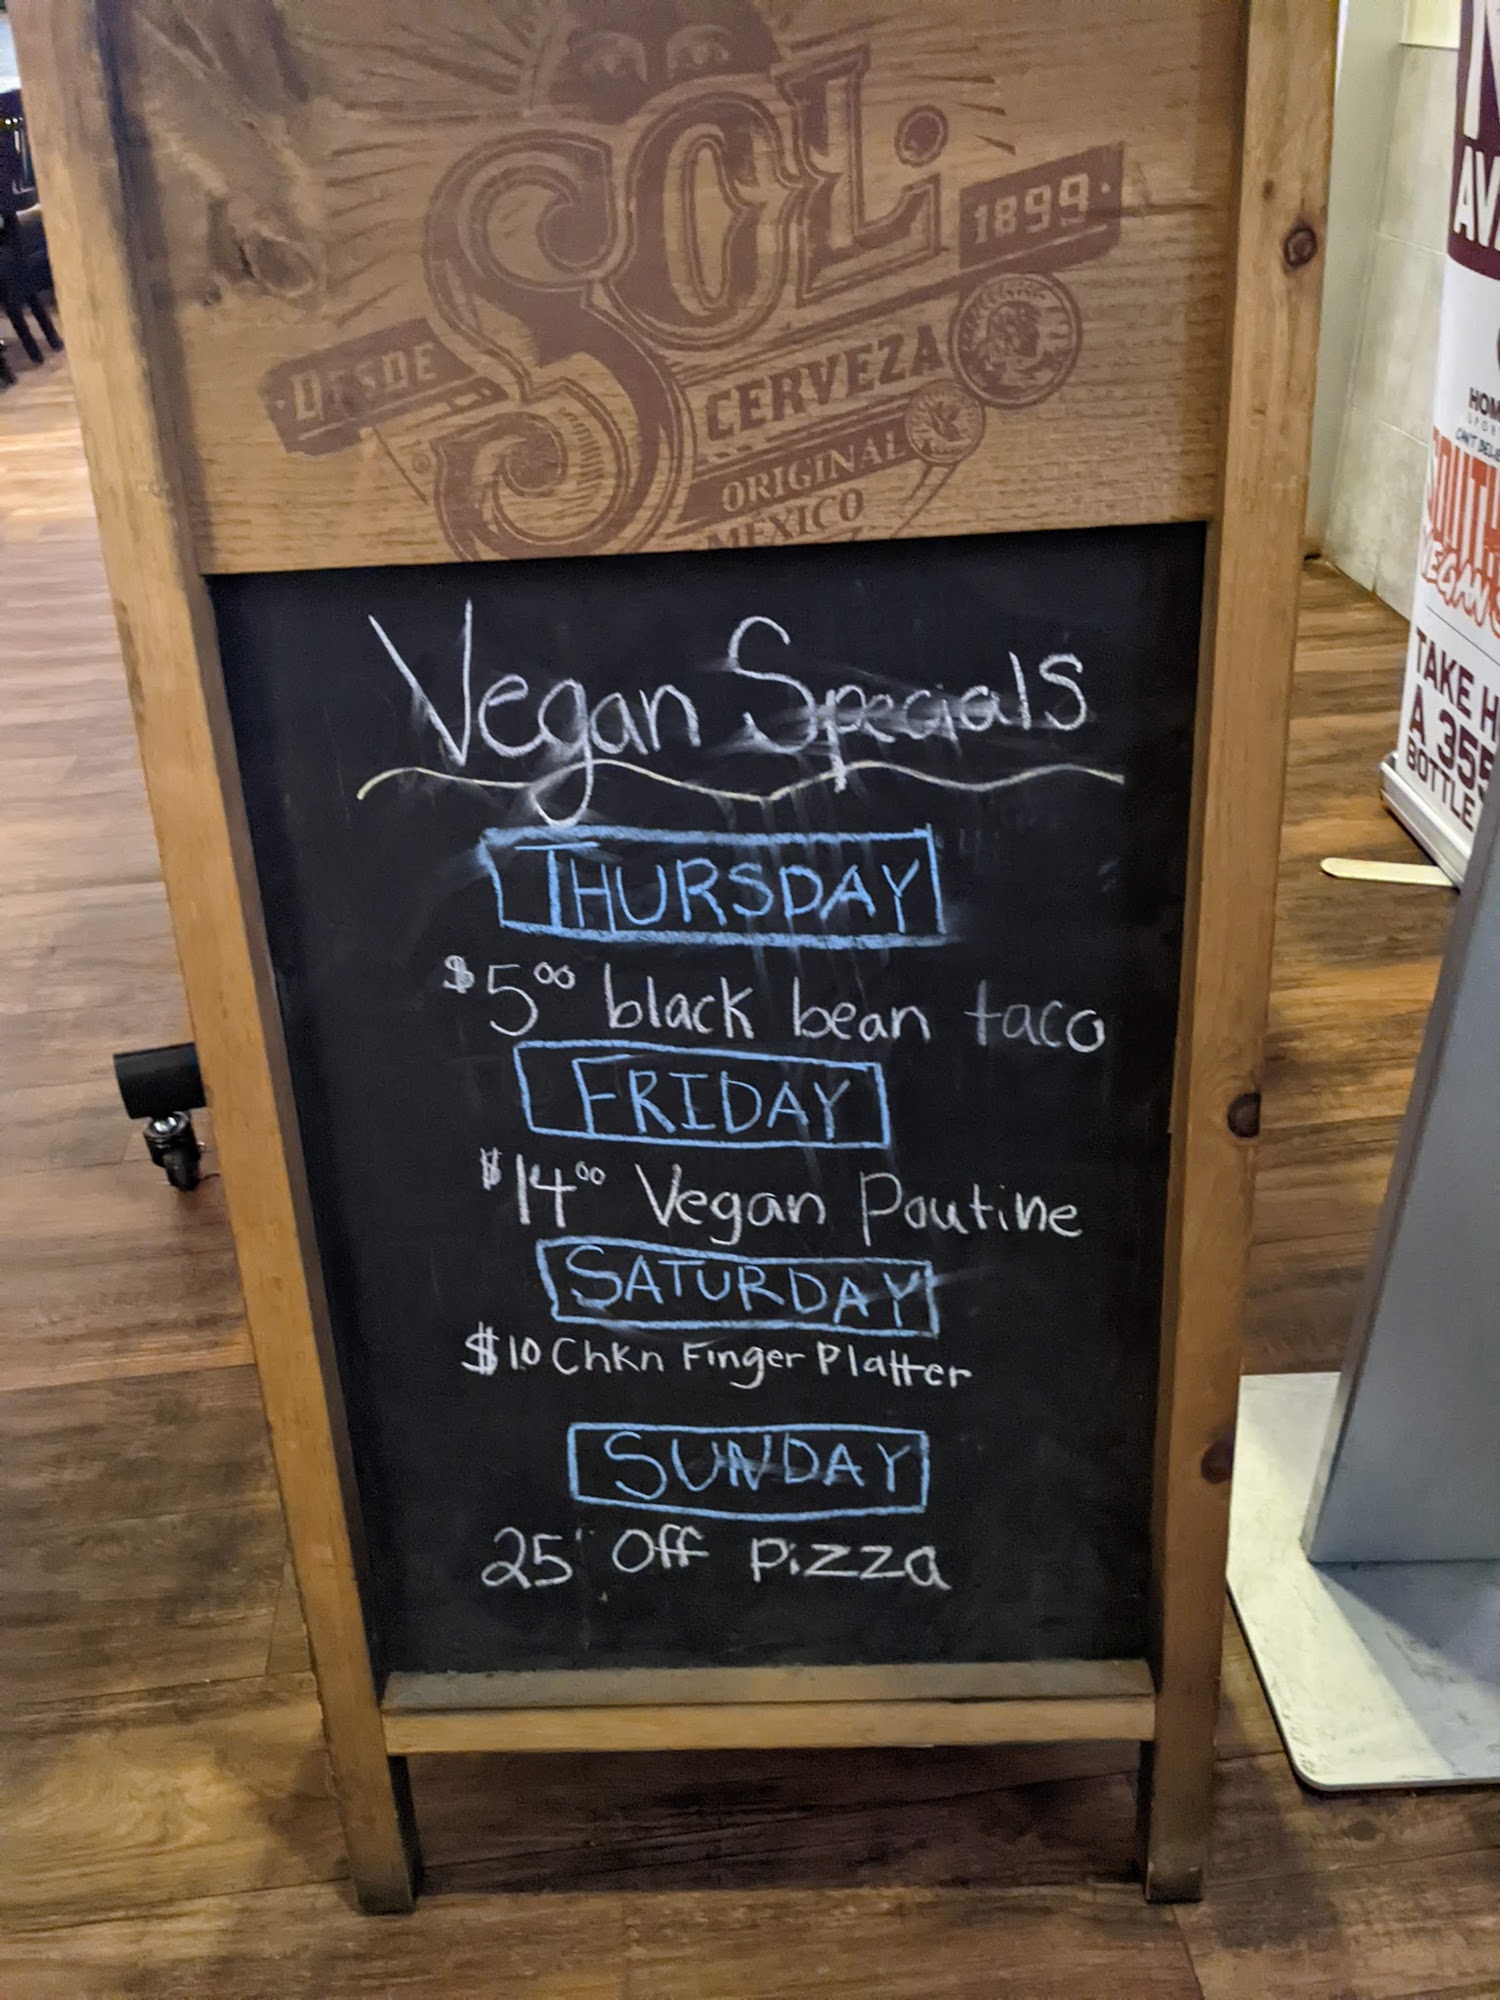 SOL.
DESDE
1899
CERVEZA
ORIGINAL
MÉXICO
Vegan Specials
THURSDAY
$5.00 black bean taco
FRIDAY
$14.00 Vegan Poutine
SATURDAY
$10 Chkn Finger Platter
SUNDAY
25 Off pizza
AV
HOM
SPOR
CAN'T BELIE
SOUTH
VEGAN
TAKE H
A 355
BOTTLE